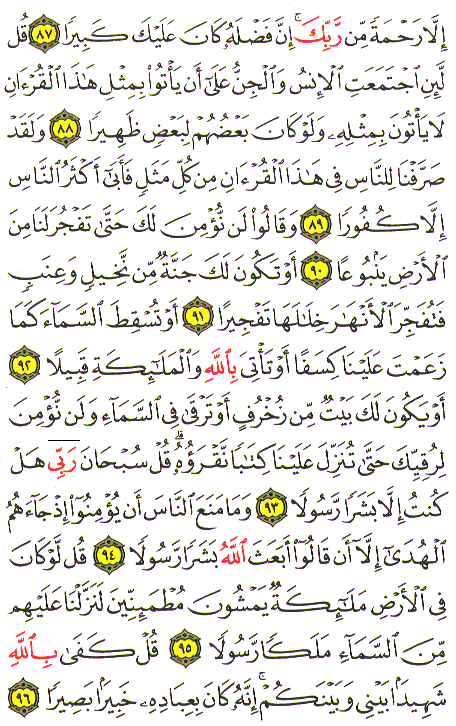 إِلَّا رَحْمَةً مِّن رَّبِّكَ ۚ إِنَّ فَضْلَهُ كَانَ عَلَيْكَ كَبِيرًا ٨٧ قُل
لَّئِنِ اجْتَمَعَتِ الْإِنسُ وَالْجِنُّ عَلَىٰ أَن يَأْتُوا بِمِثْلِ هَـٰذَا الْقُرْءَانِ
لَا يَأْتُونَ بِمِثْلِهِ وَلَوْ كَانَ بَعْضُهُمْ لِبَعْضٍ ظَهِيرًا ٨٨ وَلَقَدْ
صَرَّفْنَا لِلنَّاسِ فِي هَـٰذَا الْقُرْءَانِ مِن كُلِّ مَثَلٍ فَأَبَىٰ أَكْثَرُ النَّاسِ
إِلَّا كُفُورًا ٨٩ وَقَالُوا لَن نُّؤْمِنَ لَكَ حَتَّىٰ تَفْجُرَ لَنَا مِنَ
الْأَرْضِ يَنْبُوعًا ٩٠ أَوْ تَكُونَ لَكَ جَنَّةٌ مِّن نَّخِيلٍ وَعِنَبٍ
فَتُفَجِّرَ الْأَنْهَـٰرَ خِلَـٰلَهَا تَفْجِيرًا ٩١ أَوْ تُسْقِطَ السَّمَاءَ كَمَا
زَعَمْتَ عَلَيْنَا كِسَفًا أَوْ تَأْتِيَ بِاللَّهِ وَالْمَلَـٰئِكَةِ قَبِيلًا ٩٢
أَوْ يَكُونَ لَكَ بَيْتٌ مِّن زُخْرُفٍ أَوْ تَرْقَىٰ فِي السَّمَاءِ وَلَن نُّؤْمِنَ
لِرُقِيِّكَ حَتَّىٰ تُنَزِّلَ عَلَيْنَا كِتَـٰبًا نَّقْرَؤُهُ ۗ قُلْ سُبْحَانَ رَبِّي هَلْ
كُنتُ إِلَّا بَشَرًا رَّسُولًا ٩٣ وَمَا مَنَعَ النَّاسَ أَن يُؤْمِنُوا إِذْ جَاءَهُمُ
الْهُدَىٰ إِلَّا أَن قَالُوا أَبَعَثَ اللَّهُ بَشَرًا رَّسُولًا ٩٤ قُل لَّوْ كَانَ
فِي الْأَرْضِ مَلَـٰئِكَةٌ يَمْشُونَ مُطْمَئِنِّينَ لَنَزَّلْنَا عَلَيْهِم
مِّنَ السَّمَاءِ مَلَكًا رَّسُولًا ٩٥ قُلْ كَفَىٰ بِاللَّهِ
شَهِيدًا بَيْنِي وَبَيْنَكُمْ ۚ إِنَّهُ كَانَ بِعِبَادِهِ خَبِيرًا بَصِيرًا ٩٦